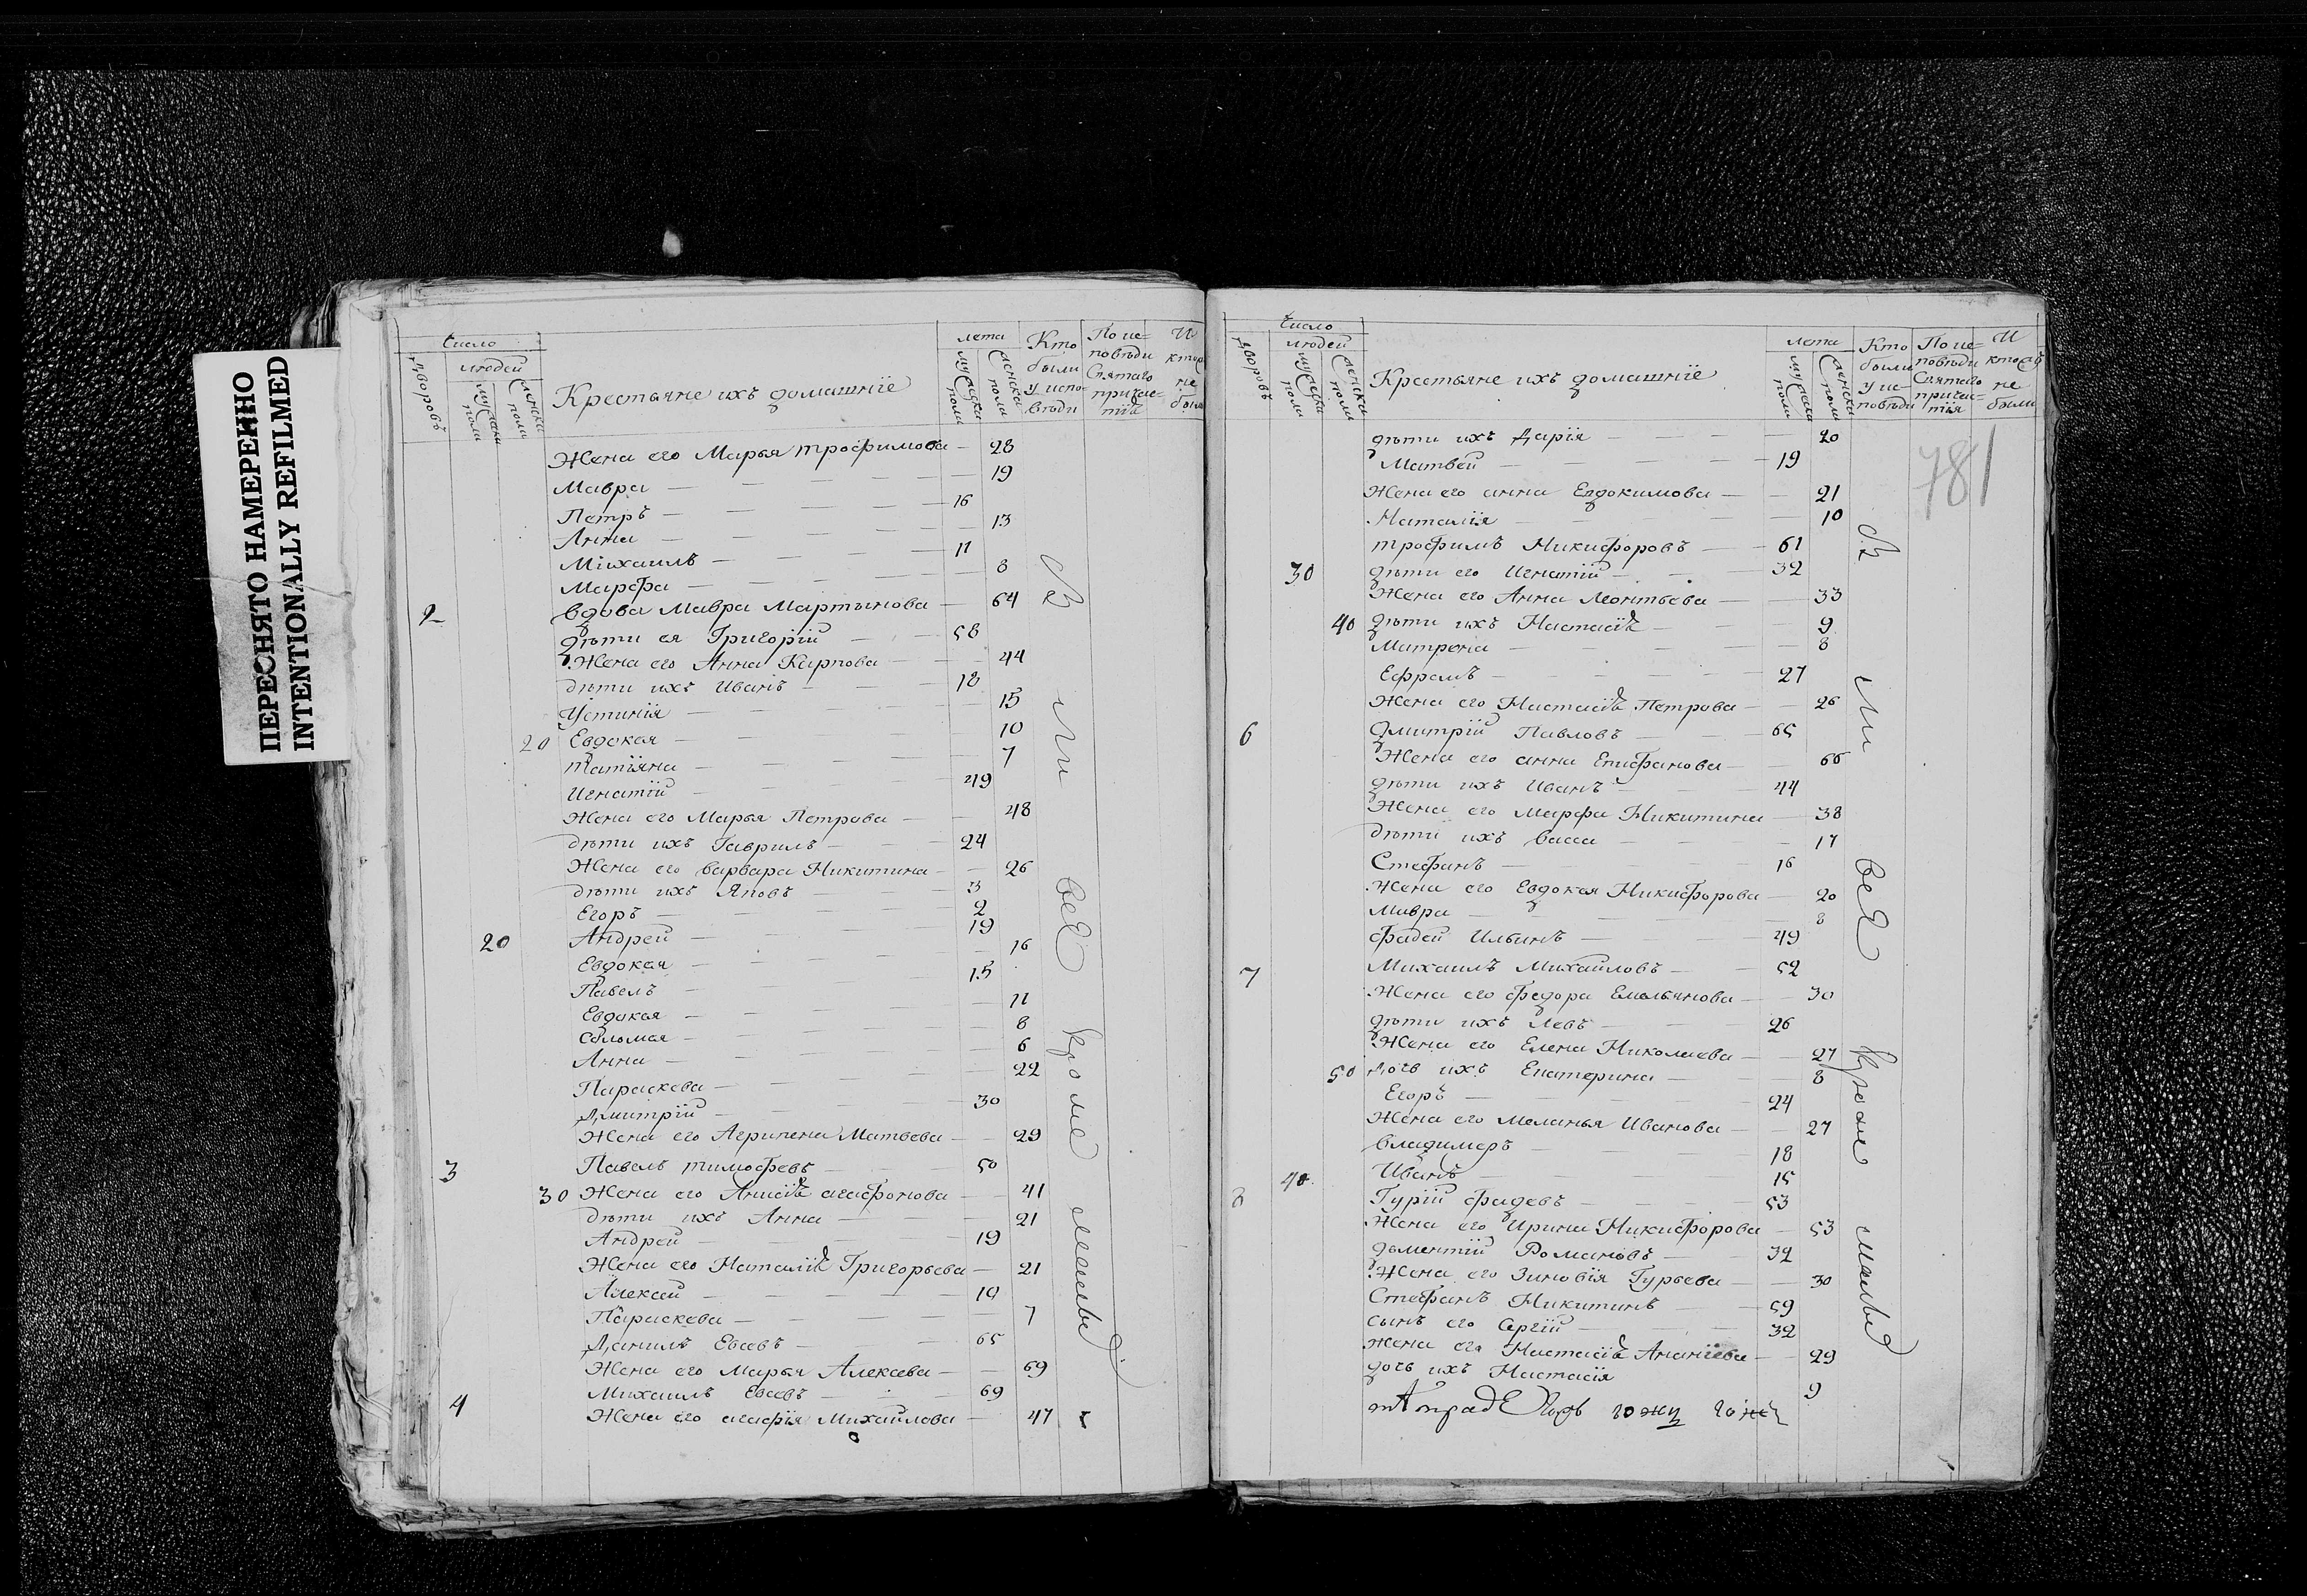 ПЕРЕСНЯТО НАМЕРЕННО
INTENTIONALLY REFILMED
Число
дворовъ
людей
мужска пола
женска пола
Крестьяне ихъ домашніе
лета
мужска пола
женска пола
Кто были у исповѣди
По исповѣди Святаго причастія
И кто не были
Жена его Марья трофимова — 28
Мавра — 19
Петръ — 16
Анна — 13
Михаилъ — 11
Марфа — 8
2 вдова Мавра Мартынова — 64
дѣти ея Григорій — 58
Жена его Анна Карпова — 44
дѣти ихъ Иванъ — 18
Устинія — 15
20 Евдокея — 10
Татіяна — 7
Игнатій — 49
Жена его Марья Петрова — 48
дѣти ихъ Гаврилъ — 24
Жена его варвара Никитина — 26
дѣти ихъ Яковъ — 3
Егоръ — 2
20 Андрей — 19
Евдокея — 16
Павелъ — 15
Евдокея — 11
8
Анна — 6
Параскева — 22
Дмитрій — 30
Жена его Агрипена Матвева — 29
3 Павелъ тимофевъ — 50
30 Жена его Агафонова — 41
дѣти ихъ Анна — 21
Андрей — 19
Жена его Наталія Григорьева — 21
Алексей — 10
Параскева — 7
Данилъ Евсевъ — 65
Жена его Марья Алексева — 69
4 Михаилъ Евсевъ — 69
Жена его агафія Михайлова — 47
всѣ кроме
Число
дворовъ
людей
мужска пола
женска пола
Крестьяне ихъ домашніе
лета
мужска пола
женска пола
Кто были у исповѣди
По исповѣди Святаго причастія
И кто не были
781
дѣти ихъ Дарія — 20
Матвей — 19
Жена его анна Евдокимова — 21
Наталія — 10
трофимъ Никифоровъ — 61
30 дѣти его Игнатій — 32
Жена его Анна Леонтьева — 33
40 дѣти ихъ Настасія — 9
Матрена — 8
Ефремъ — 27
Жена его Настасія Петрова — 26
6 Дмитрій Павловъ — 65
Жена его анна Епифанова — 66
дѣти ихъ Иванъ — 44
Жена его Марфа Никитина — 38
дѣти ихъ васса — 17
Стефанъ — 16
Жена его Евдокея Никифорова — 20
Мавра — 8
фадей Ильинъ — 49
7 Михаилъ Михайловъ — 52
Жена его федора Емельянова — 30
дѣти ихъ Левъ — 26
Жена его Елена Николаева — 27
50 дочь ихъ Екатерина — 8
Егоръ — 24
Жена его Меланья Иванова — 27
владимеръ — 18
40 Иванъ — 15
8 Гурій фадевъ — 53
Жена его Ирина Никифорова — 53
дометій Романовъ — 32
Жена его Зиновія Гурьева — 30
Стефанъ Никитинъ — 59
сынъ его Сергій — 32
жена его Настасія Ананіева — 29
дочь ихъ Настасія 9
всѣ кроме